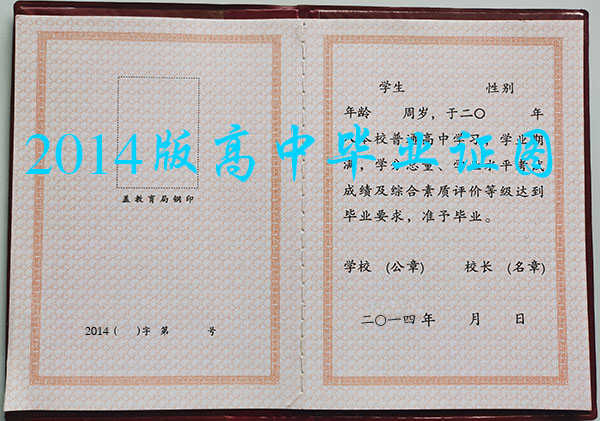 盖教育局钢印
2014（ ）字 第 号
学生 性别
年龄 周岁，于二〇 年
本校普通高中学习，学业期
满，学分总量、学业水平考试
成绩及综合素质评价等级达到
毕业要求，准予毕业。
学校 (公章) 校长 (名章)
二〇一四年 月 日
2014版高中毕业证图